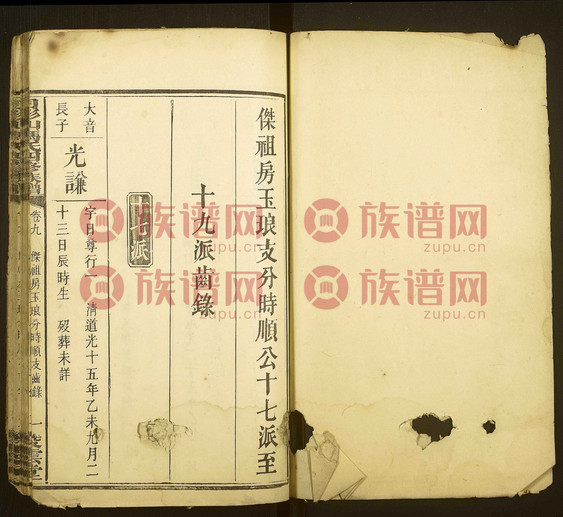 傑祖房玉琅支分時順公十七派至
十九派齒錄
十七派
大音
長子
光謙
字日尊行一 清道光十五年乙未九月二
十三日辰時生 歿葬未詳
卷九
傑祖房玉琅分時順支齒錄
一
族谱网
zupu.cn
族谱网
zupu.cn
族谱网
zupu.cn
族谱网
zupu.cn